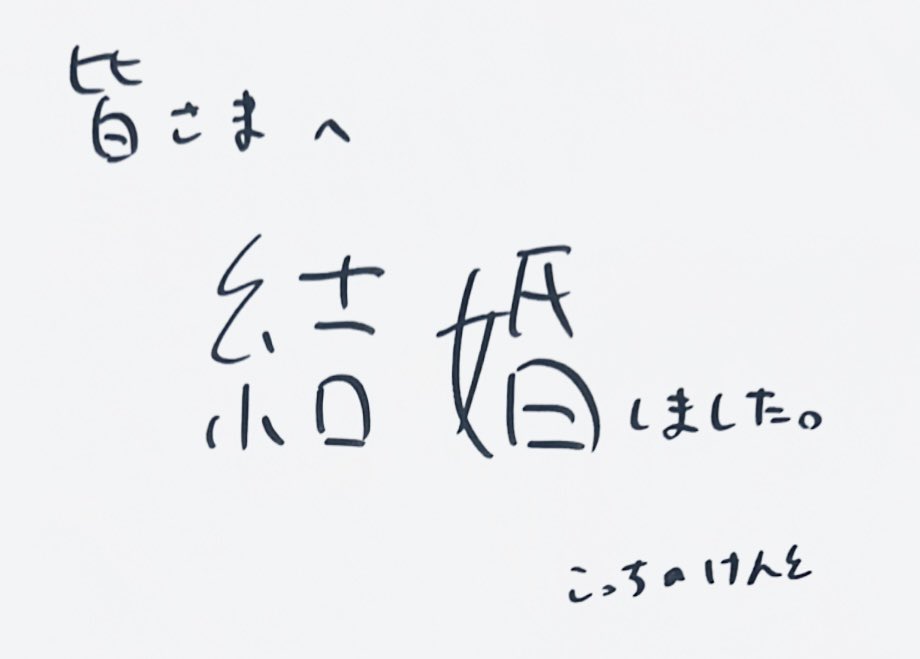 皆さまへ
結婚しました。
こっちのけんと